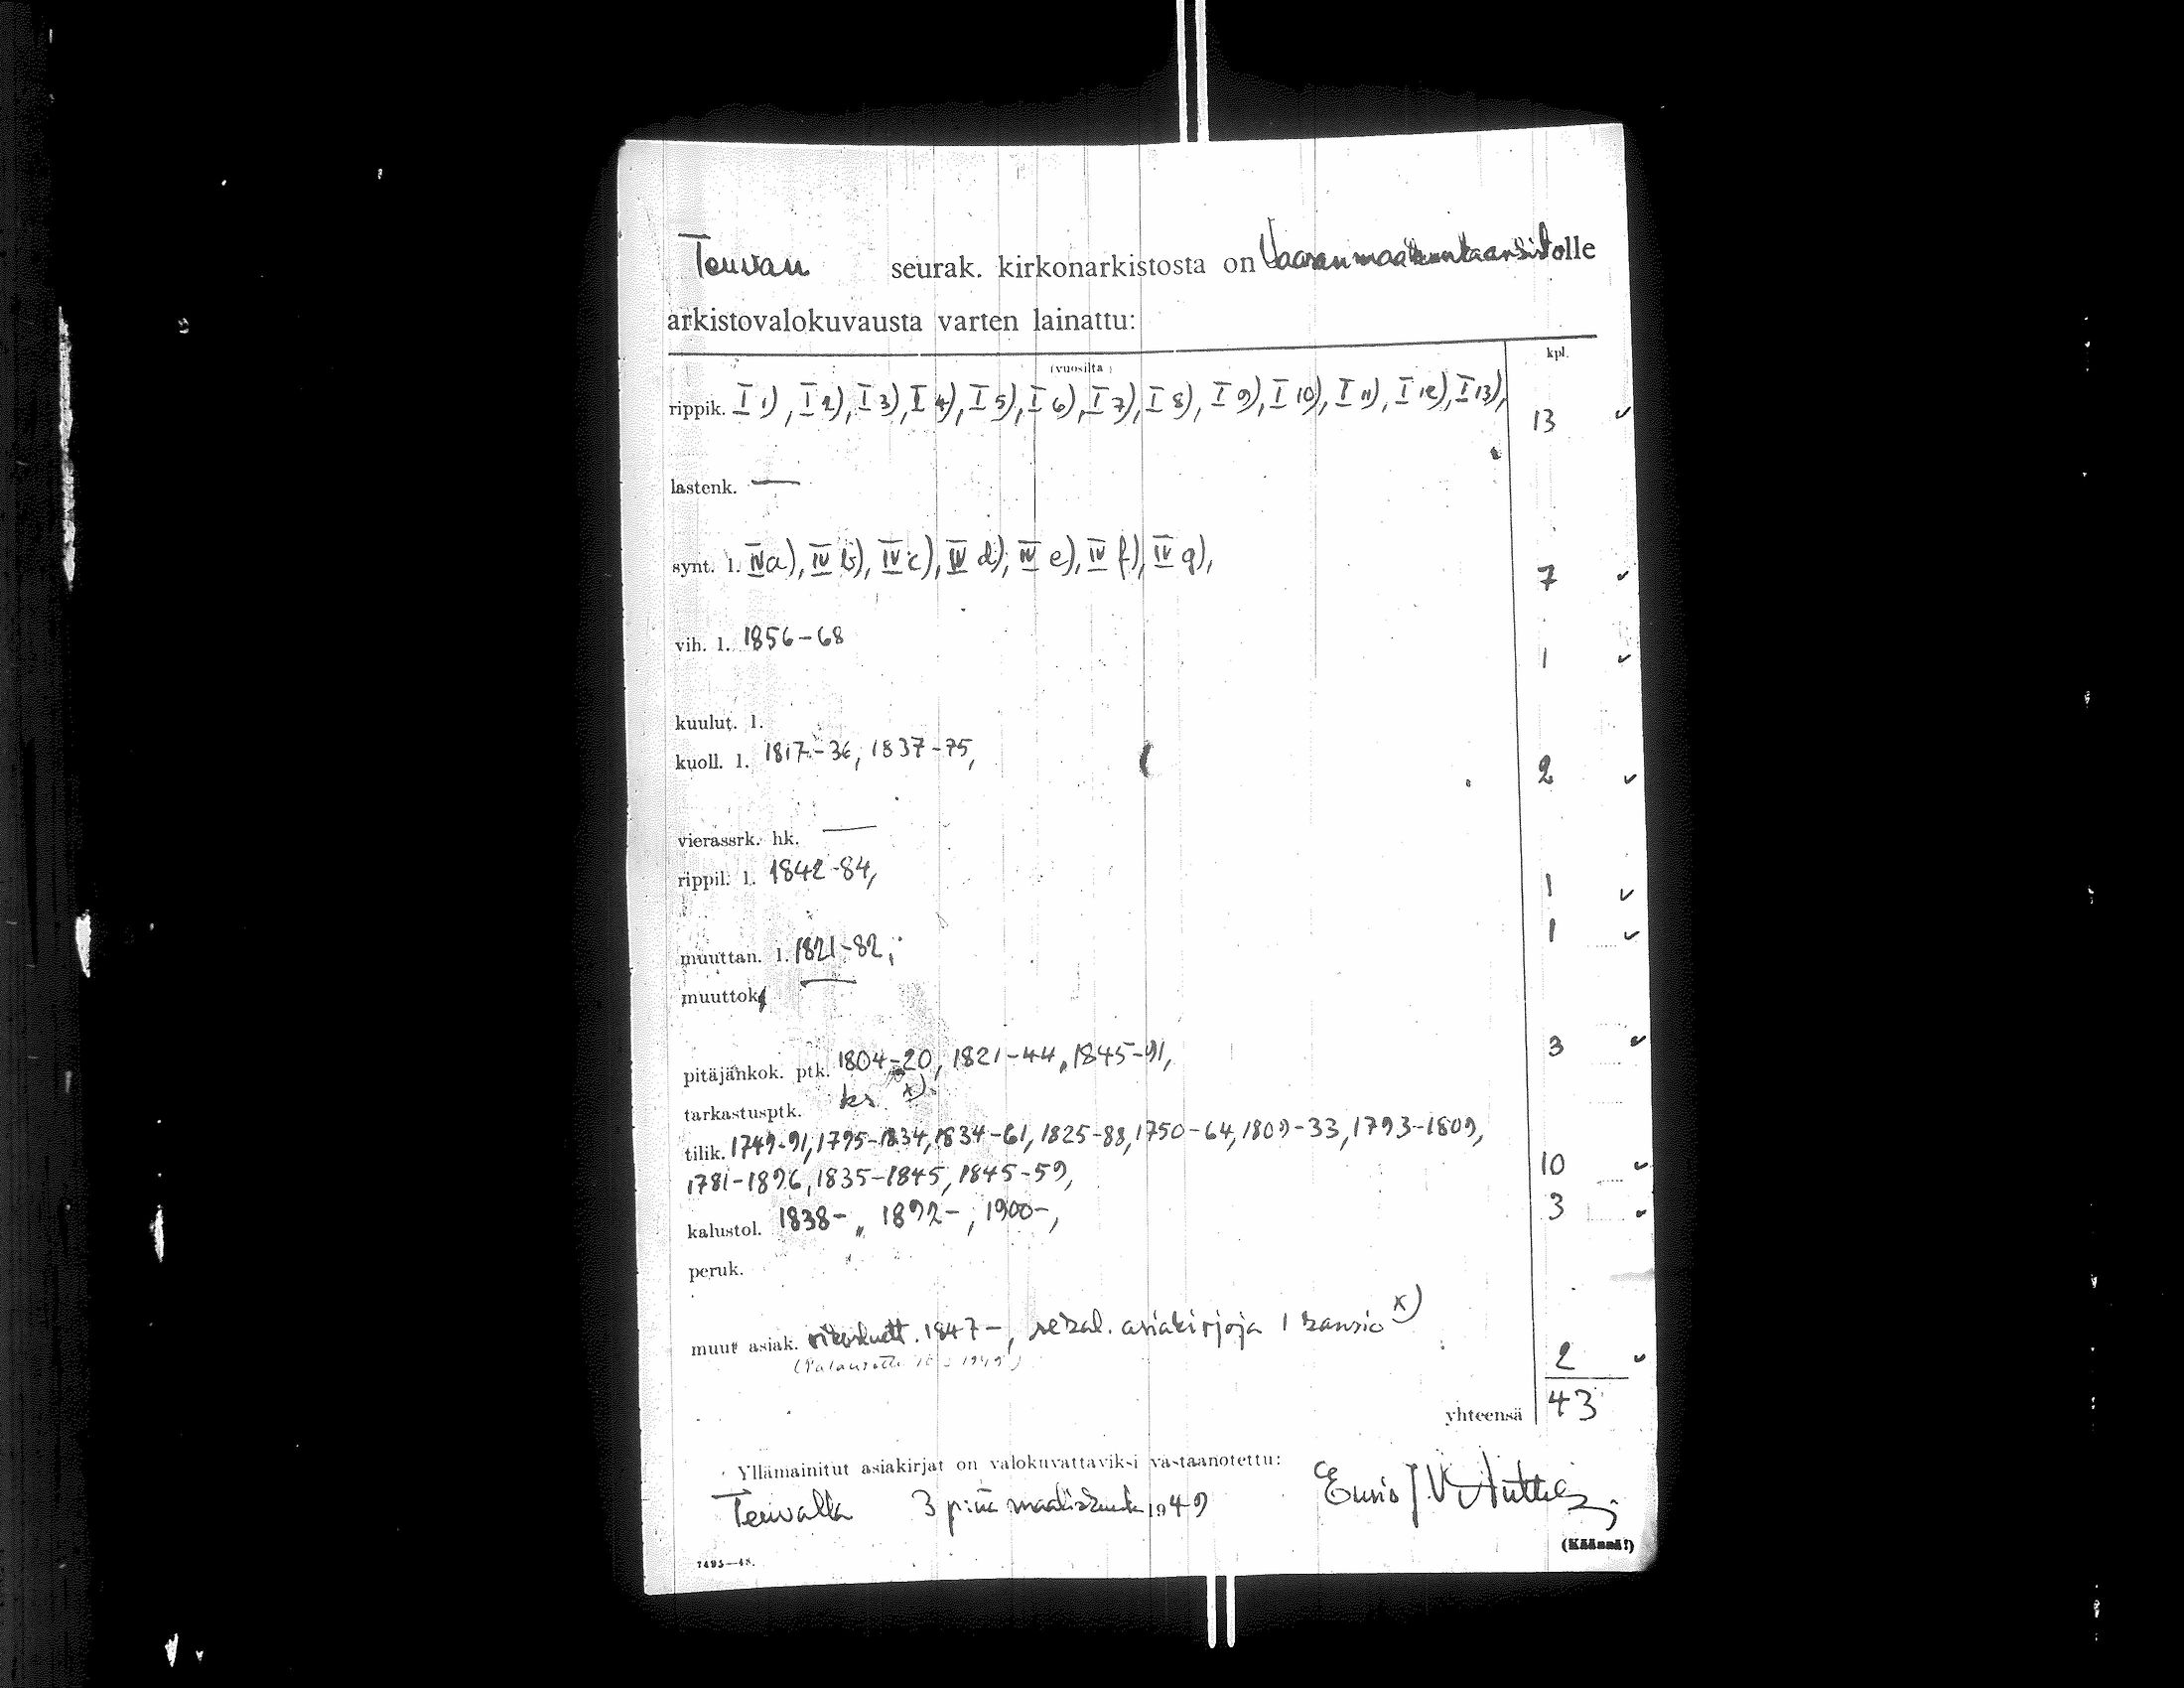 Teuvan seurak. kirkonarkistosta on Vaasan maakunta-arkistolle
arkistovalokuvausta varten lainattu:
(vuosilta) kpl.
rippik. I 1), I 2), I 3), I 4), I 5), I 6), I 7), I 8), I 9), I 10), I 11), I 12), I 13), 13 ✓
lastenk. —
synt. l. IV a), IV b), IV c), IV d), IV e), IV f), IV g), 7 ✓
vih. l. 1856-68 1 ✓
kuulut. l.
kuoll. l. 1817-36, 1837-75, 2 ✓
vierassrk. hk. —
rippil. l. 1842-84, 1 ✓
muuttan. l. 1821-82, 1 ✓
muuttok. —
pitäjänkok. ptk. 1804-20, 1821-44, 1845-91, 3 ✓
tarkastusptk. ks. x)
tilik. 1749-91, 1795-1834, 1834-61, 1825-88, 1750-64, 1809-33, 1793-1809,
1781-1896, 1835-1845, 1845-59, 10 ✓
kalustol. 1838-, 1892-, 1900-, 3 ✓
peruk.
muut asiak. 1847-, sekal. asiakirjoja 1 kansio x) 2 ✓
yhteensä 43
Yllämainitut asiakirjat on valokuvattaviksi vastaanotettu:
Teuvalla 3 p:nä maaliskuuta 1949
(Käännä!)
7495—48.